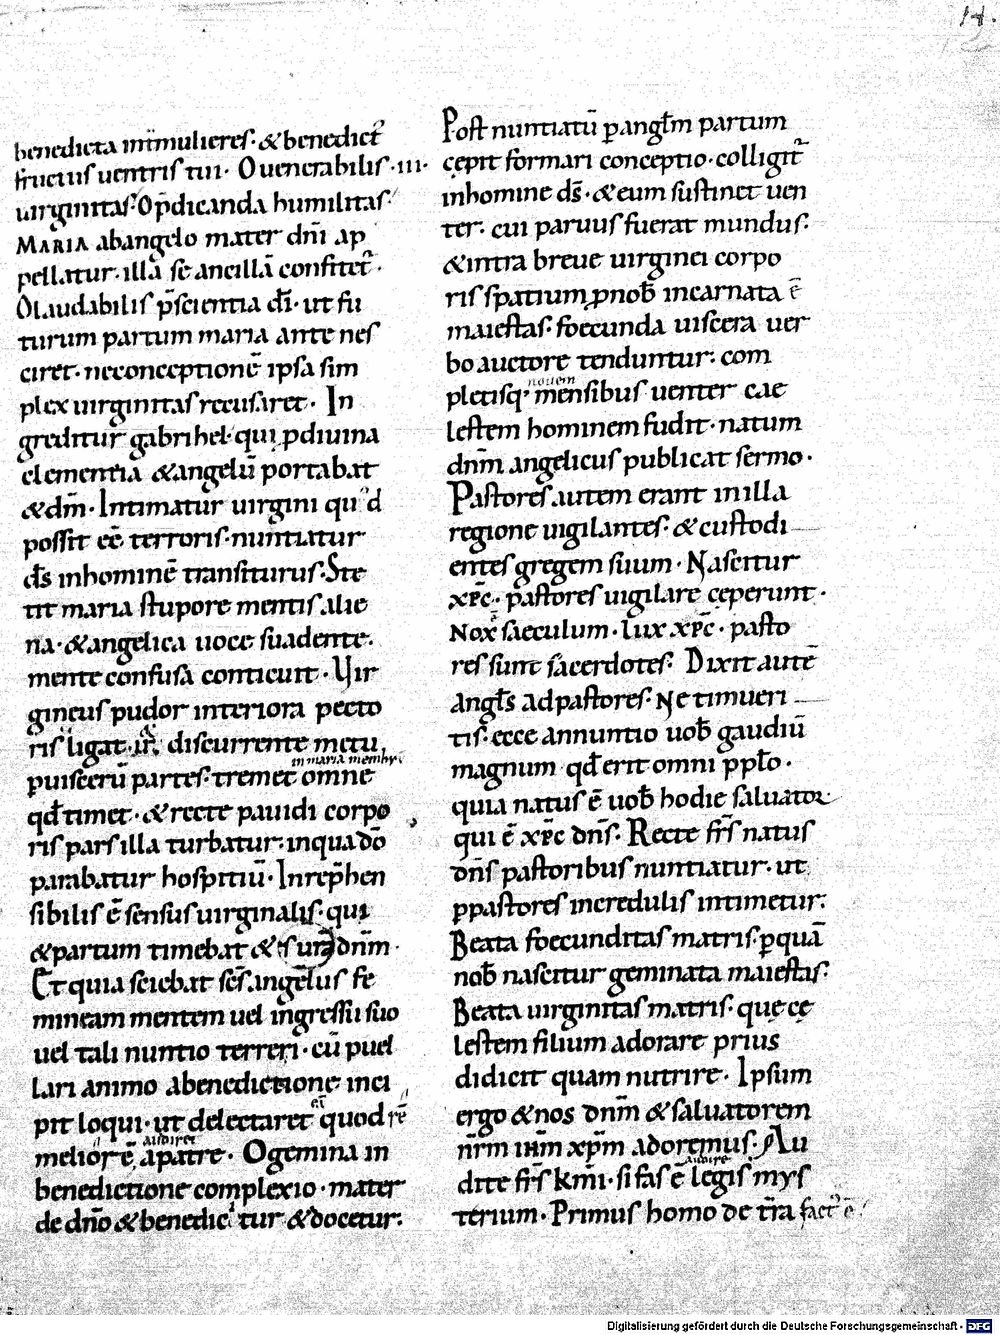 14.
benedicta int̄mulieres· &benedict᷒
fructus uentris tui· O uenerabilis ·III·
uirginitas· Op̄dicanda humilitas·
MARIA abangelo mater dn̄i ap
pellatur· illā se ancillā confitet᷒·
Olaudabilis p̄scientia dī· ut fu
turum partum maria ante nes
ciret· neconceptionē ipsa sim
plex uirginitas recusaret· In
greditur gabrihel· qui ꝑdiuina
clementia &angelū portabat
&dm̄· Intimatur uirgini quod
possit eē terroris· nuntiatur
ds̄ inhominē transiturus· Ste
tit maria stupore mentis alie
na· &angelica uoce suadente·
mente confusa conticuit· Vir
gineus pudor interiora pecto
ris ligat· discurrente metu
ꝑuiscerū partes· tremet omne in maria membr᷒
qd̄ timet· &recte pauidi corpo
ris pars illa turbatur· inqua dō
parabatur hospitiū· Inrep̄hen
sibilis ē sensus uirginalis· qui
&partum timebat & dn̄m·
Et quia sciebat scs̄ angelus fe
mineam mentem uel ingressu suo
uel tali nuntio terreri· cū puel
lari animo abenedictione inci
pit loqui· ut delectaret eā quod rē
meliorē audiret apatre· O gemina in
benedictione complexio· mater
de dn̄o &benedicitur &docetur·
Post nuntiatū ꝑ angl̄m partum
cępit formari conceptio· colligit᷒
inhomine ds̄· &eum sustinet uen
ter· cui paruus fuerat mundus·
&intra breue uirginei corpo
ris spatium ꝓnob̄ incarnata ē
maiestas· foecunda uiscera uer
bo auctore tenduntur· com
pletisq· nouem mensibus uenter cae
lestem hominem fudit· natum
dnm̄ angelicus publicat sermo·
Pastores autem erant inilla
regione uigilantes· &custodi
entes gregem suum· Nascitur
xp̄c· pastores uigilare cęperunt·
Nox ē saeculum· lux xp̄c· pasto
res sunt sacerdotes· Dixit autē
angl̄s ad pastores· Ne timueri
tis· ecce annuntio uob̄ gaudiū
magnum qd̄ erit omni ppl̄o·
quia natus ē uob̄ hodie saluator
qui ē xp̄c dn̄s· Recte frs̄ natus
dn̄s pastoribus nuntiatur· ut
ꝑpastores incredulis intimetur·
Beata foecunditas matris· ꝑquā
nob̄ nascitur geminata maiestas·
Beata uirginitas matris· quę cę
lestem filium adorare prius
didicit quam nutrire· Ipsum
ergo &nos dn̄m &saluatorem
nr̄m ihm̄ xpm̄ adoremus· Au
dite frs̄ km̄i· si fas ē audire legis mys
terium· Primus homo de tr̄a fact᷒ ē
Digitalisierung gefördert durch die Deutsche Forschungsgemeinschaft - DFG